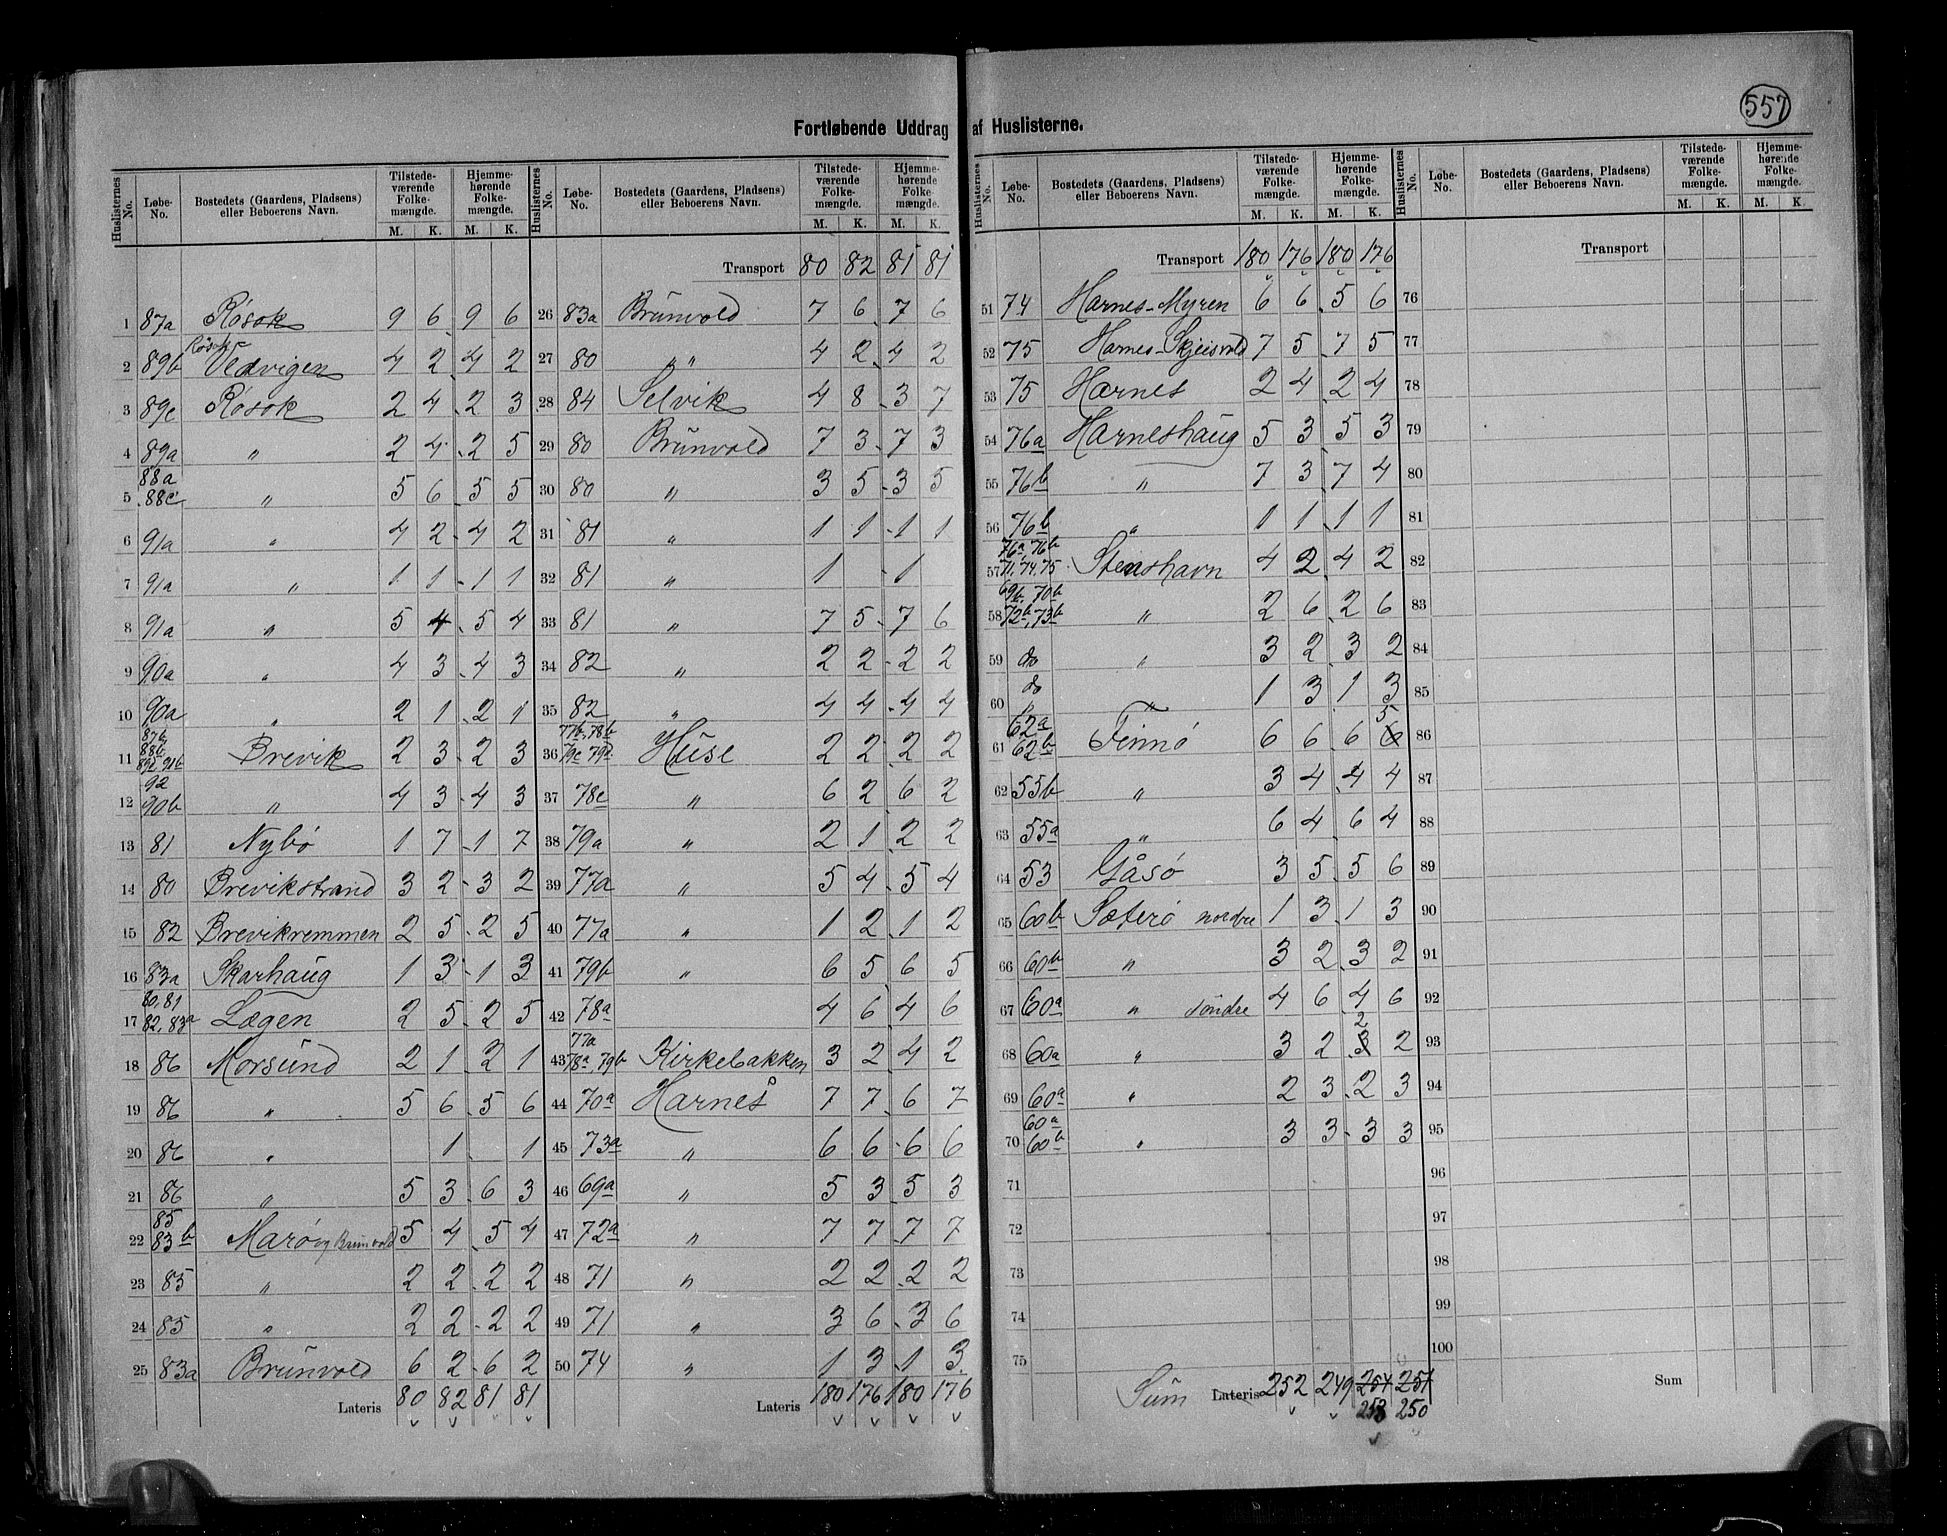 557
Fortløbende Uddrag af Huslisterne.
Huslisternes No. Løbe-No. Bostedets (Gaardens, Pladsens) eller Beboerens Navn. Tilstedeværende Folkemængde. M. K. Hjemmehørende Folkemængde. M. K.
1 87a Røsok 9 6 9 6
2 89b Røsok Vedvigen 4 2 4 2
3 89c Røsok 2 4 2 3
4 89a " 2 4 2 5
5 88a 88c " 5 6 5 5
6 91a " 4 2 4 2
7 91a " 1 1 1 1
8 91a " 5 4 5 4
9 90a " 4 3 4 3
10 90a " 2 1 2 1
11 87b 88b 91b Brevik 2 3 2 3
12 92 90b " 4 3 4 3
13 81 Nybø 1 7 1 7
14 80 Brevikstrand 3 2 3 2
15 82 Brevikremmen 2 5 2 5
16 83a Skarhaug 1 3 1 3
17 80, 81 82, 83a Lægen 2 5 2 5
18 86 Morsund 2 1 2 1
19 86 " 5 6 5 6
20 86 " 1 1
21 86 " 5 3 6 3
22 85 83b Marø og Brunvold 5 4 5 4
23 85 " 2 2 2 2
24 85 " 2 2 2 2
25 83a Brunvold 6 2 6 2
Lateris 80 82 81 81
Huslisternes No. Løbe-No. Bostedets (Gaardens, Pladsens) eller Beboerens Navn. Tilstedeværende Folkemængde. M. K. Hjemmehørende Folkemængde. M. K.
Transport 80 82 81 81
26 83a Brunvold 7 6 7 6
27 80 " 4 2 4 2
28 84 Selvik 4 8 3 7
29 80 Brunvold 7 3 7 3
30 80 " 3 5 3 5
31 81 " 1 1 1 1
32 81 " 1 1
33 81 " 7 5 7 6
34 82 " 2 2 2 2
35 82 " 4 4 4 4
36 77b, 78b 79c 79d Huse 2 2 2 2
37 78c " 6 2 6 2
38 79a " 2 1 2 2
39 77a " 5 4 5 4
40 77a " 1 2 1 2
41 79b " 6 5 6 5
42 78a " 4 6 4 6
43 77a 78a 79b Kirkebakken 3 2 4 2
44 70a Harnes 7 7 6 7
45 73a " 6 6 6 6
46 69a " 5 3 5 3
47 72a " 7 7 7 7
48 71 " 2 2 2 2
49 71 " 3 6 3 6
50 74 " 1 3 1 3
Lateris 180 176 180 176
Huslisternes No. Løbe-No. Bostedets (Gaardens, Pladsens) eller Beboerens Navn. Tilstedeværende Folkemængde. M. K. Hjemmehørende Folkemængde. M. K.
Transport 180 176 180 176
51 74 Harnes-Myren 6 6 5 6
52 75 Harnes-Skjeisvold 7 5 7 5
53 75 Harnes 2 4 2 4
54 76a Harneshaug 5 3 5 3
55 76b " 7 3 7 4
56 76b " 1 1 1 1
57 76a, 76b 71, 74, 75 Stenshavn 4 2 4 2
58 69b, 70b 72b, 73b " 2 6 2 6
59 do " 3 2 3 2
60 do " 1 3 1 3
61 62a 62b Finnø 6 6 6 6 5
62 55b " 3 4 4 4
63 55a " 6 4 6 4
64 53 Gåsø 3 5 5 6
65 60b Sæterø nordre 1 3 1 3
66 60b " 3 2 3 2
67 60a " søndre 4 6 4 6
68 60a " 3 2 3 2 2
69 60a " 2 3 2 3
70 60a 60b " 3 3 3 3
71
72
73
74
75
Sum Lateris 252 249 254 251
253 250
Huslisternes No. Løbe-No. Bostedets (Gaardens, Pladsens) eller Beboerens Navn. Tilstedeværende Folkemængde. M. K. Hjemmehørende Folkemængde. M. K.
Transport
76
77
78
79
80
81
82
83
84
85
86
87
88
89
90
91
92
93
94
95
96
97
98
99
100
Sum